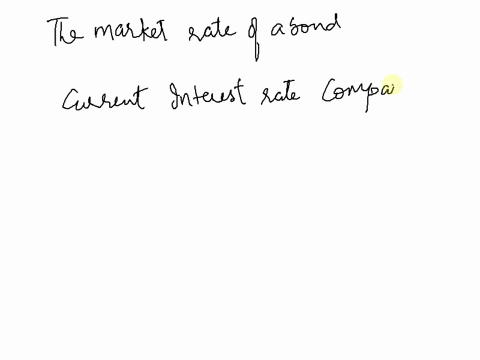 The market rate of a bond
Current Interest rate Compa